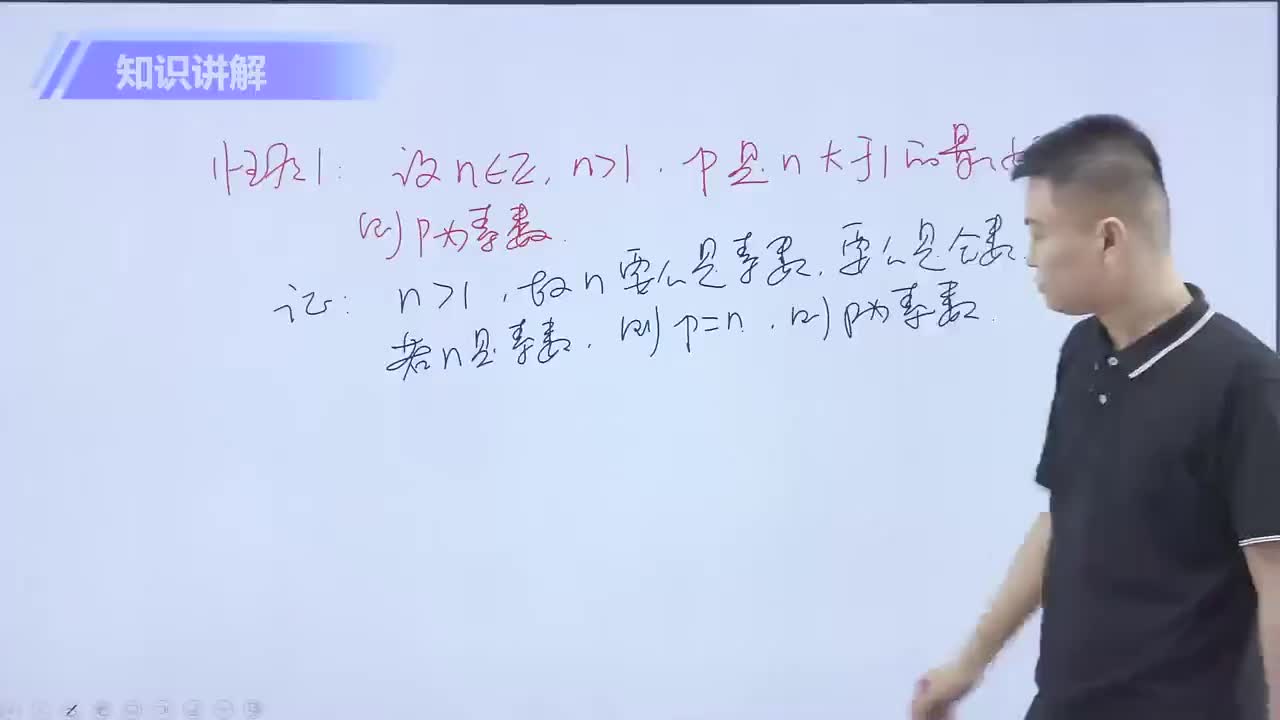 知识讲解
性质1: 设n∈Z, n>1, p是n大于1的最
则p为素数.
证: n>1, 故n要么是素数, 要么是合数.
若n是素数, 则p=n, 则p为素数.